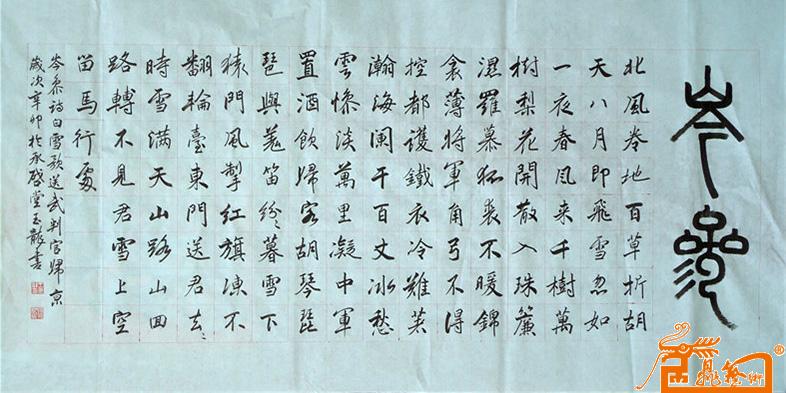 岑參
北風卷地百草折胡
天八月即飛雪忽如
一夜春風来千樹萬
樹梨花開散入珠簾
濕羅慕狐裘不暖錦
衾薄將軍角弓不得
控都護鐵衣冷難著
瀚海闌干百丈冰愁
雲慘淡萬里凝中軍
置酒飲歸客胡琴琵
琶與羌笛紛〻暮雪下
轅門風掣紅旗凍不
翻輪臺東門送君去〻
時雪满天山路山回
路轉不見君雪上空
留馬行處
岑參詩白雪歌送武判官歸京
歲次辛卯於永啓堂玉龍書